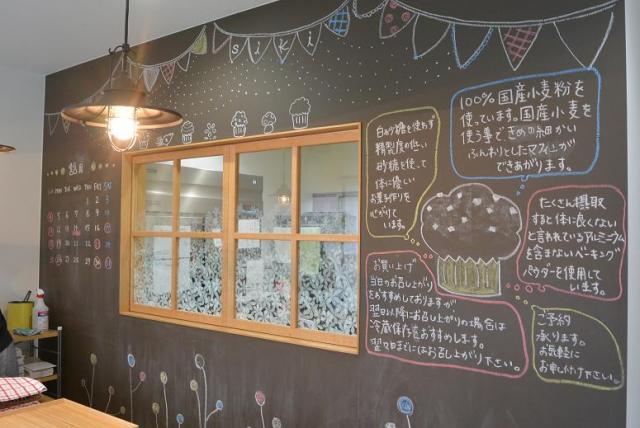 siki
100%国産小麦粉を
使っています。国産小麦を
使う事できめの細かい
ふんわりとしたマフィンが
できあがります。
白砂糖を使わず
精製度の低い
砂糖を使って
体に優しい
お菓子作りを
心がけて
います。
たくさん摂取
すると体に良くない
と言われているアルミニウム
を含まないベーキング
パウダーを使用して
います。
お買い上げ
当日のお召し上がり
をおすすめしておりますが
翌日以降にお召し上がりの場合は
冷蔵保存をおすすめします。
翌々日までにはお召し上がり下さい。
ご予約
承ります。
お気軽に
お申し付け下さい。